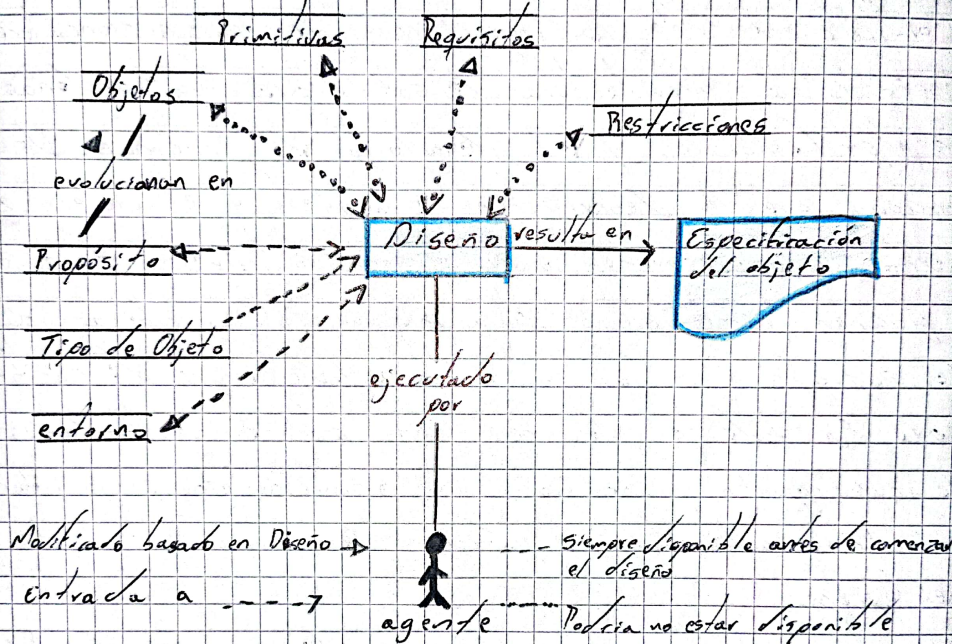 Primitivas
Requisitos
Objetos
Restricciones
evolucionan en
Diseño
resulta en
Especificación
del objeto
Propósito
Tipo de Objeto
ejecutado
por
entorno
Modificado basado en Diseño
Siempre disponible antes de comenzar
el diseño
Entrada a
agente
Podria no estar disponible